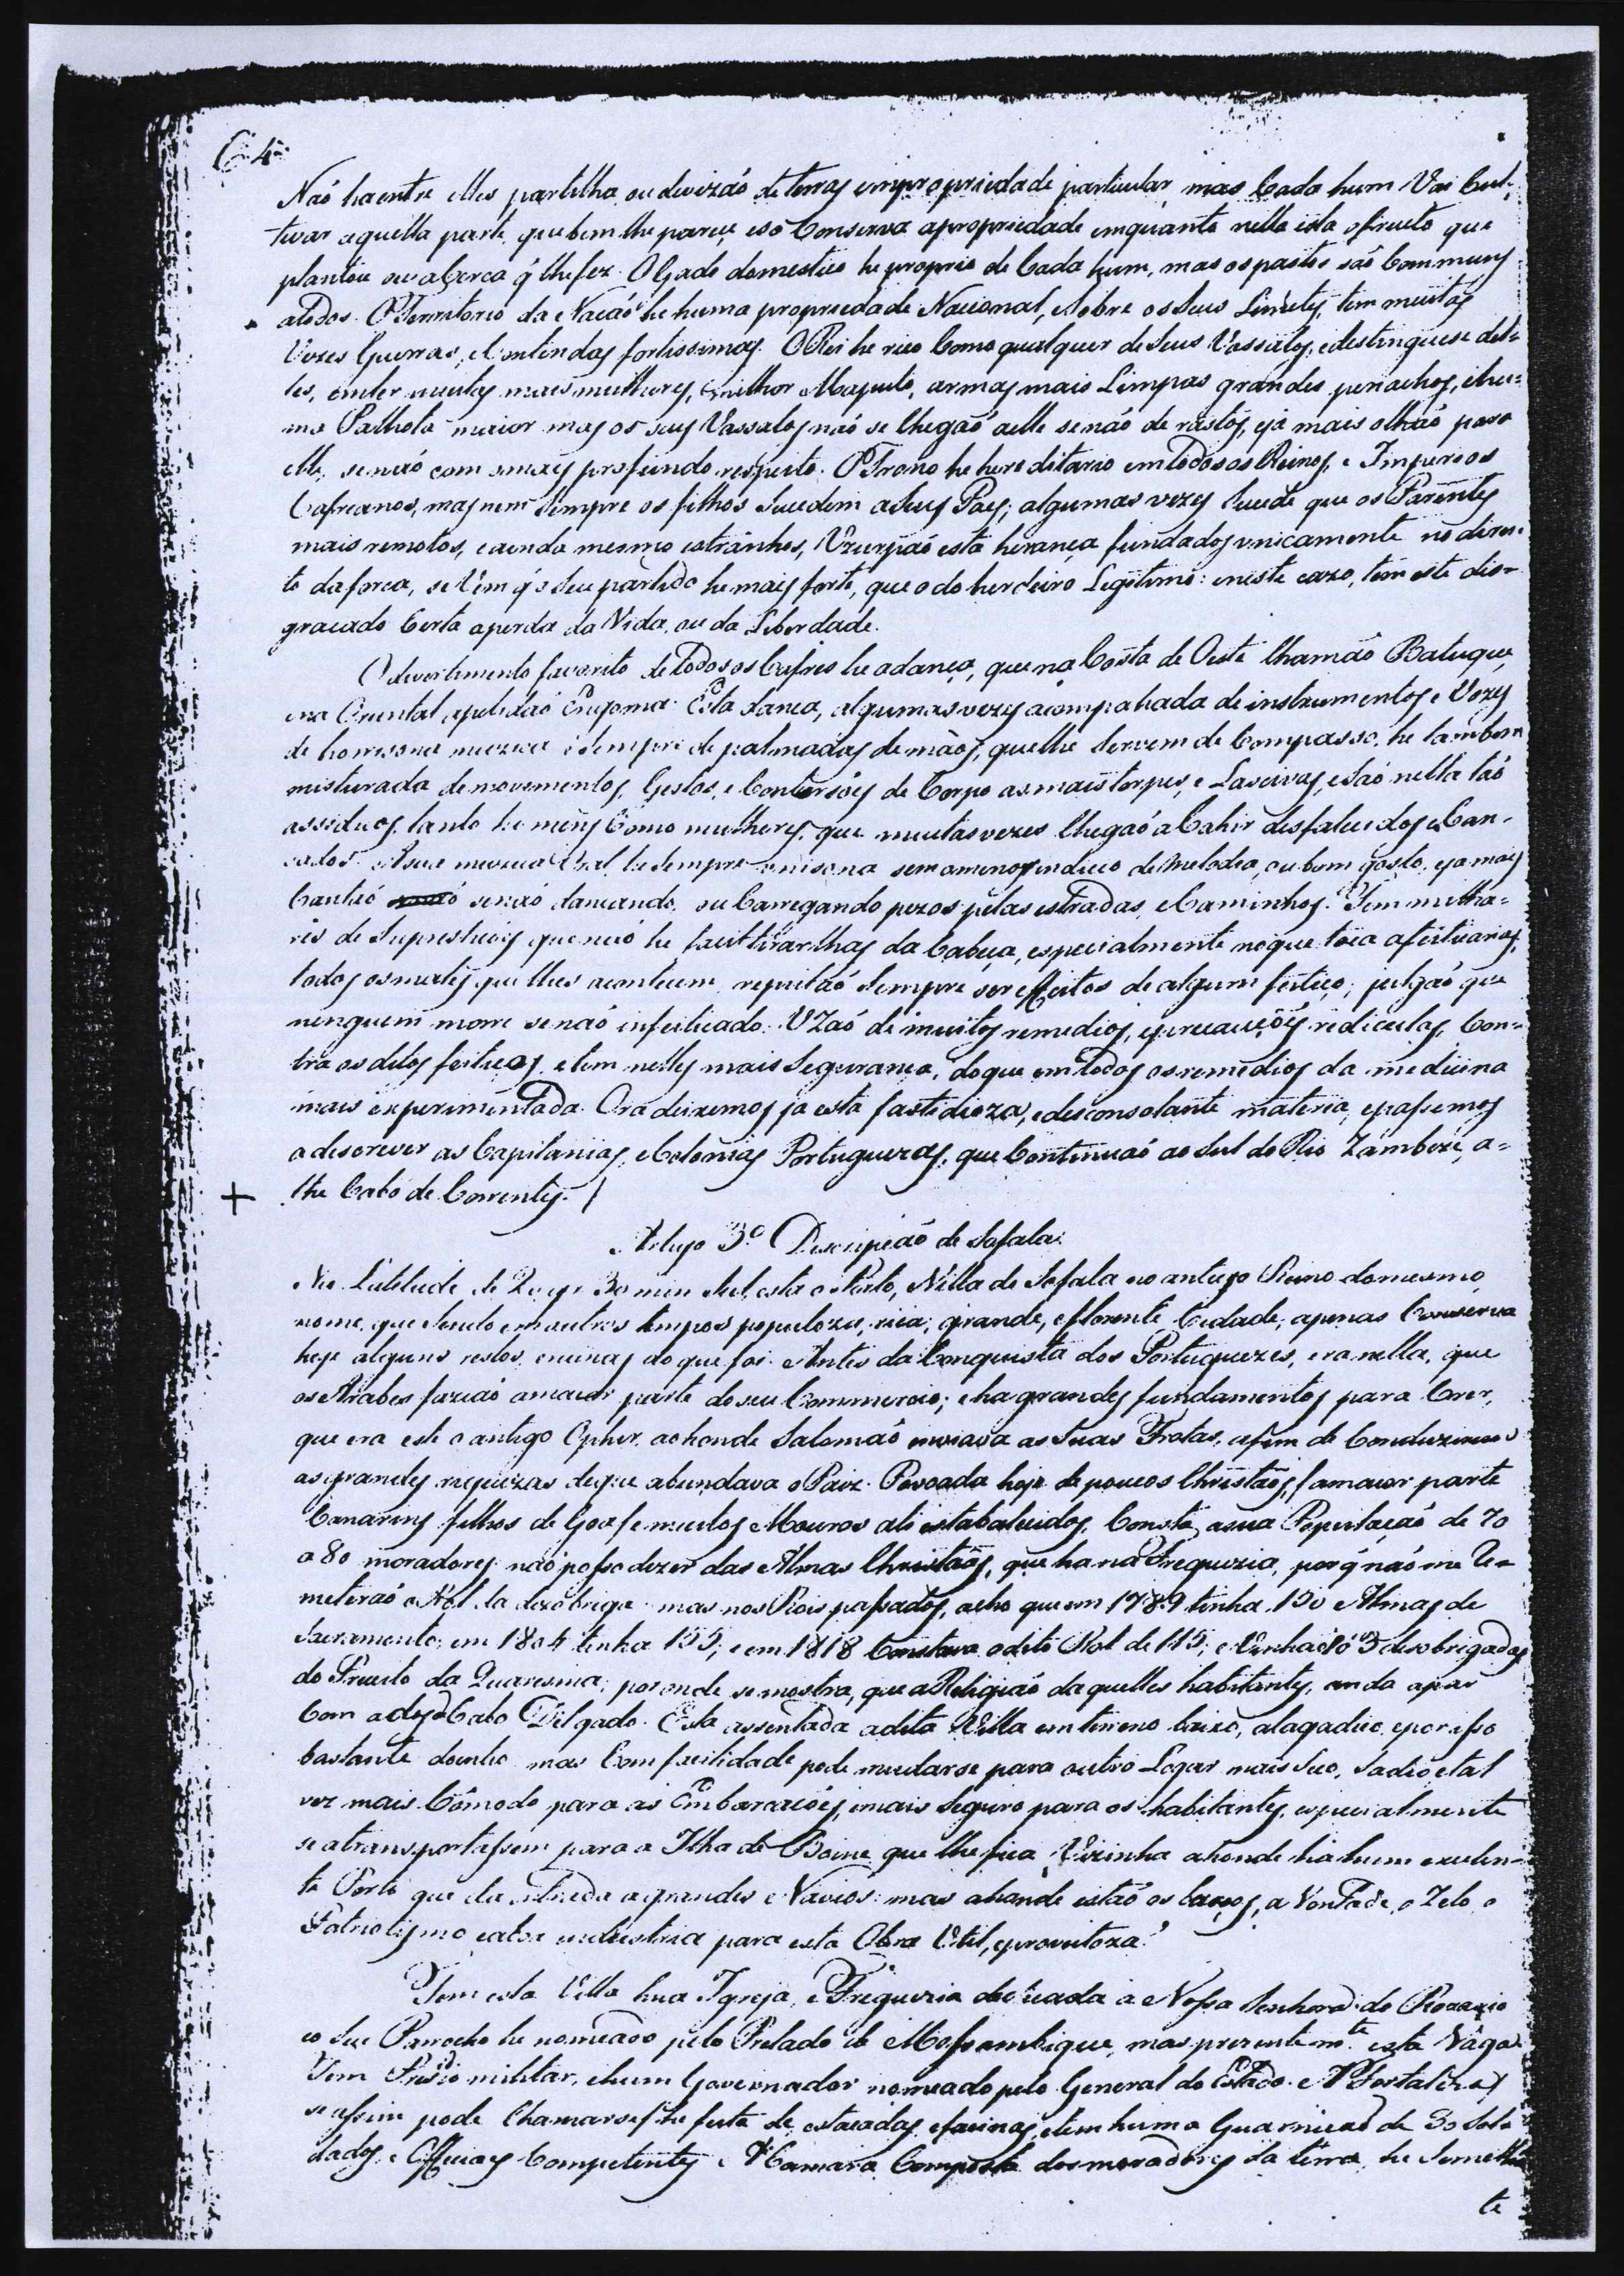 C 4
Naõ ha entre elles partilha ou divizaõ de terras em propriedade particular, mas Cada hum Vai Cul-
tivar aquella parte, que bem lhe parece, e só Conserva a propriedade em quanto nella esta o fructo que
plantou ou a Cerca q̃ lhe fez. O Gado domestico he proprio de Cada hum, mas os pastos saõ Communs
a todos. O Territorio da Naçaõ he huma propriedade Nacional, e Sobre os Seus Limites, tem muitas
Vezes Guerras, e Contendas fortissimas. O Rei he rico Como qualquer de Seus Vassalos, e destinguese del-
les, em ter muitas mais mulheres, e milhor Maputo, armas mais Limpas grandes penachos, e hu-
ma Palhota maior mas os seus Vassalos naõ se Chegaõ a elle se naõ de rastos, e já mais olhaõ para
elle, se naõ com o mais profundo respeito. O Trono he hereditario em todos os Reinos, e Imperios
Cafreanos, mas nem Sempre os filhos Sucedem a Seus Pays; algumas vezes Sucede que os Parentes
mais remotos, e ainda mesmo estranhos, Vzurpaõ esta herança fundados unicamente no direi-
to da força, se Vem q̃ o Seu partido he mais forte, que o do herdeiro Legitimo: e neste cazo, tem este dis-
graçado Certa a perda da Vida, ou da Liberdade.
O devertimento favorito de todos os Cafres he a dança, que na Costa de Oeste Chamaõ Batuque,
e na Oriental apelidaõ Engoma. Esta dança, algumas vezes acompahada de instrumentos, e Vozes
de horrisona muzica e Sempre de palmadas de mãos, que lhe Servem de Compasso, he tambem
misturada de movementos, Gestos, e Contorsões de Corpo as mais torpes, e Lascivas, e Saõ nella taõ
assiduos, tanto homens Como mulheres, que muitas vezes Chegaõ a Cahir desfalecidos, e Can-
çados. A sua muzica Vocal he Sempre unisona sem o menor indicio de Melodia, ou bom gosto, e ja mais
Cantaõ senaõ dançando, ou Carregando pezos pelas estradas, e Caminhos. Tem milha-
res de Superstiçoẽs que naõ he facil tirarlhas da Cabeça, especialmente no que toca a feitiçarias,
todos os males que lhes acontecem, reputaõ Sempre ser effeitos de algum feitiço; julgaõ que
ninguem morre se naõ infeitiçado. VZaõ de muitos remedios, e precauções rediculas, Con-
tra os ditos feitiços, e tem nelles mais Segurança, do que em todos os remedios da medicina
mais experimentada. Ora deixemos ja esta fastidioza, e desconsolante materia, e passemos
a descrever as Capitanias, e Colonias Portuguezas, que Continuaõ ao Sul do Rio Zambeze, a-
+ the Cabo de Correntes.
Artigo 3º Descripçaõ de Sofala.
Na Latitude de 20 gr. 30 min Sul, esta o Porto, e Villa de Sofala no antigo Reino do mesmo
nome, que Sendo em outros tempos populoza, rica, grande, e florente Cidade, apenas Conserva
hoje alguns restos, e ruinas do que foi. Antes da Conquista dos Portuguezes, era nella, que
os Arabes faziaõ a maior parte do seu Commercio; e ha grandes fundamentos para Crer,
que era este o antigo Ophir, a honde Salomaõ enviava as Suas Frotas, a fim de Conduzirem
as grandes riquezas de que abundava o Paiz. Povoada hoje de poucos Christãos, (a maior parte
Canarins filhos de Goa) e muitos Mouros ali estabalecidos, Consta a sua Populaçaõ de 70
a 80 moradores, naõ posso dizer das Almas Christãs, que ha na Freguezia, porq̃ naõ me Re-
meteraõ o Rol da dezobriga: mas nos Rois passados, acho que em 1789 tinha 150 Almas de
Sacramento, em 1804 tinha 155, e em 1818 Constava o dito Rol de 115, e Vinhaõ só 3 desobrigadas
do Preceito da Quaresma, por onde se mostra, que a Religiaõ daquelles habitantes, anda a par
Com a dos de Cabo Delgado. Esta assentada a dita Villa em terreno baixo, alagadiço e por isso
bastante doentio, mas Com facilidade pode mudarse para outro Logar mais Seco, Sadio e tal
vez mais Cômodo para as Embarcações, e mais Seguro para os habitantes, especialmente
se a transportassem para a Ilha de Boene que lhe fica Vizinha, ahonde ha hum excelen-
te Porto que da entrada a grandes Navios: mas ahonde estaõ os braços, a Vontade, o Zelo, o
Patriotismo e a boa industria para esta Obra Util, e proveitoza?
Tem esta Villa hua Igreja, e Freguezia dedicada a Nossa Senhora do Rozario
e o Seu Parrocho he nomeado pelo Prelado de Mossambique, mas prezentemᵗᵉ esta Vaga.
Tem Prezidio militar, e hum Governador nomeado pelo General do Estado. A Fortaleza (
se assim pode Chamarse) he feita de estacadas, e faxinas, e tem huma Guarniçaõ de 30 Sol-
dados, e Officiaes Competentes. A Camara Composta dos moradores da terra, he Semelhan
te